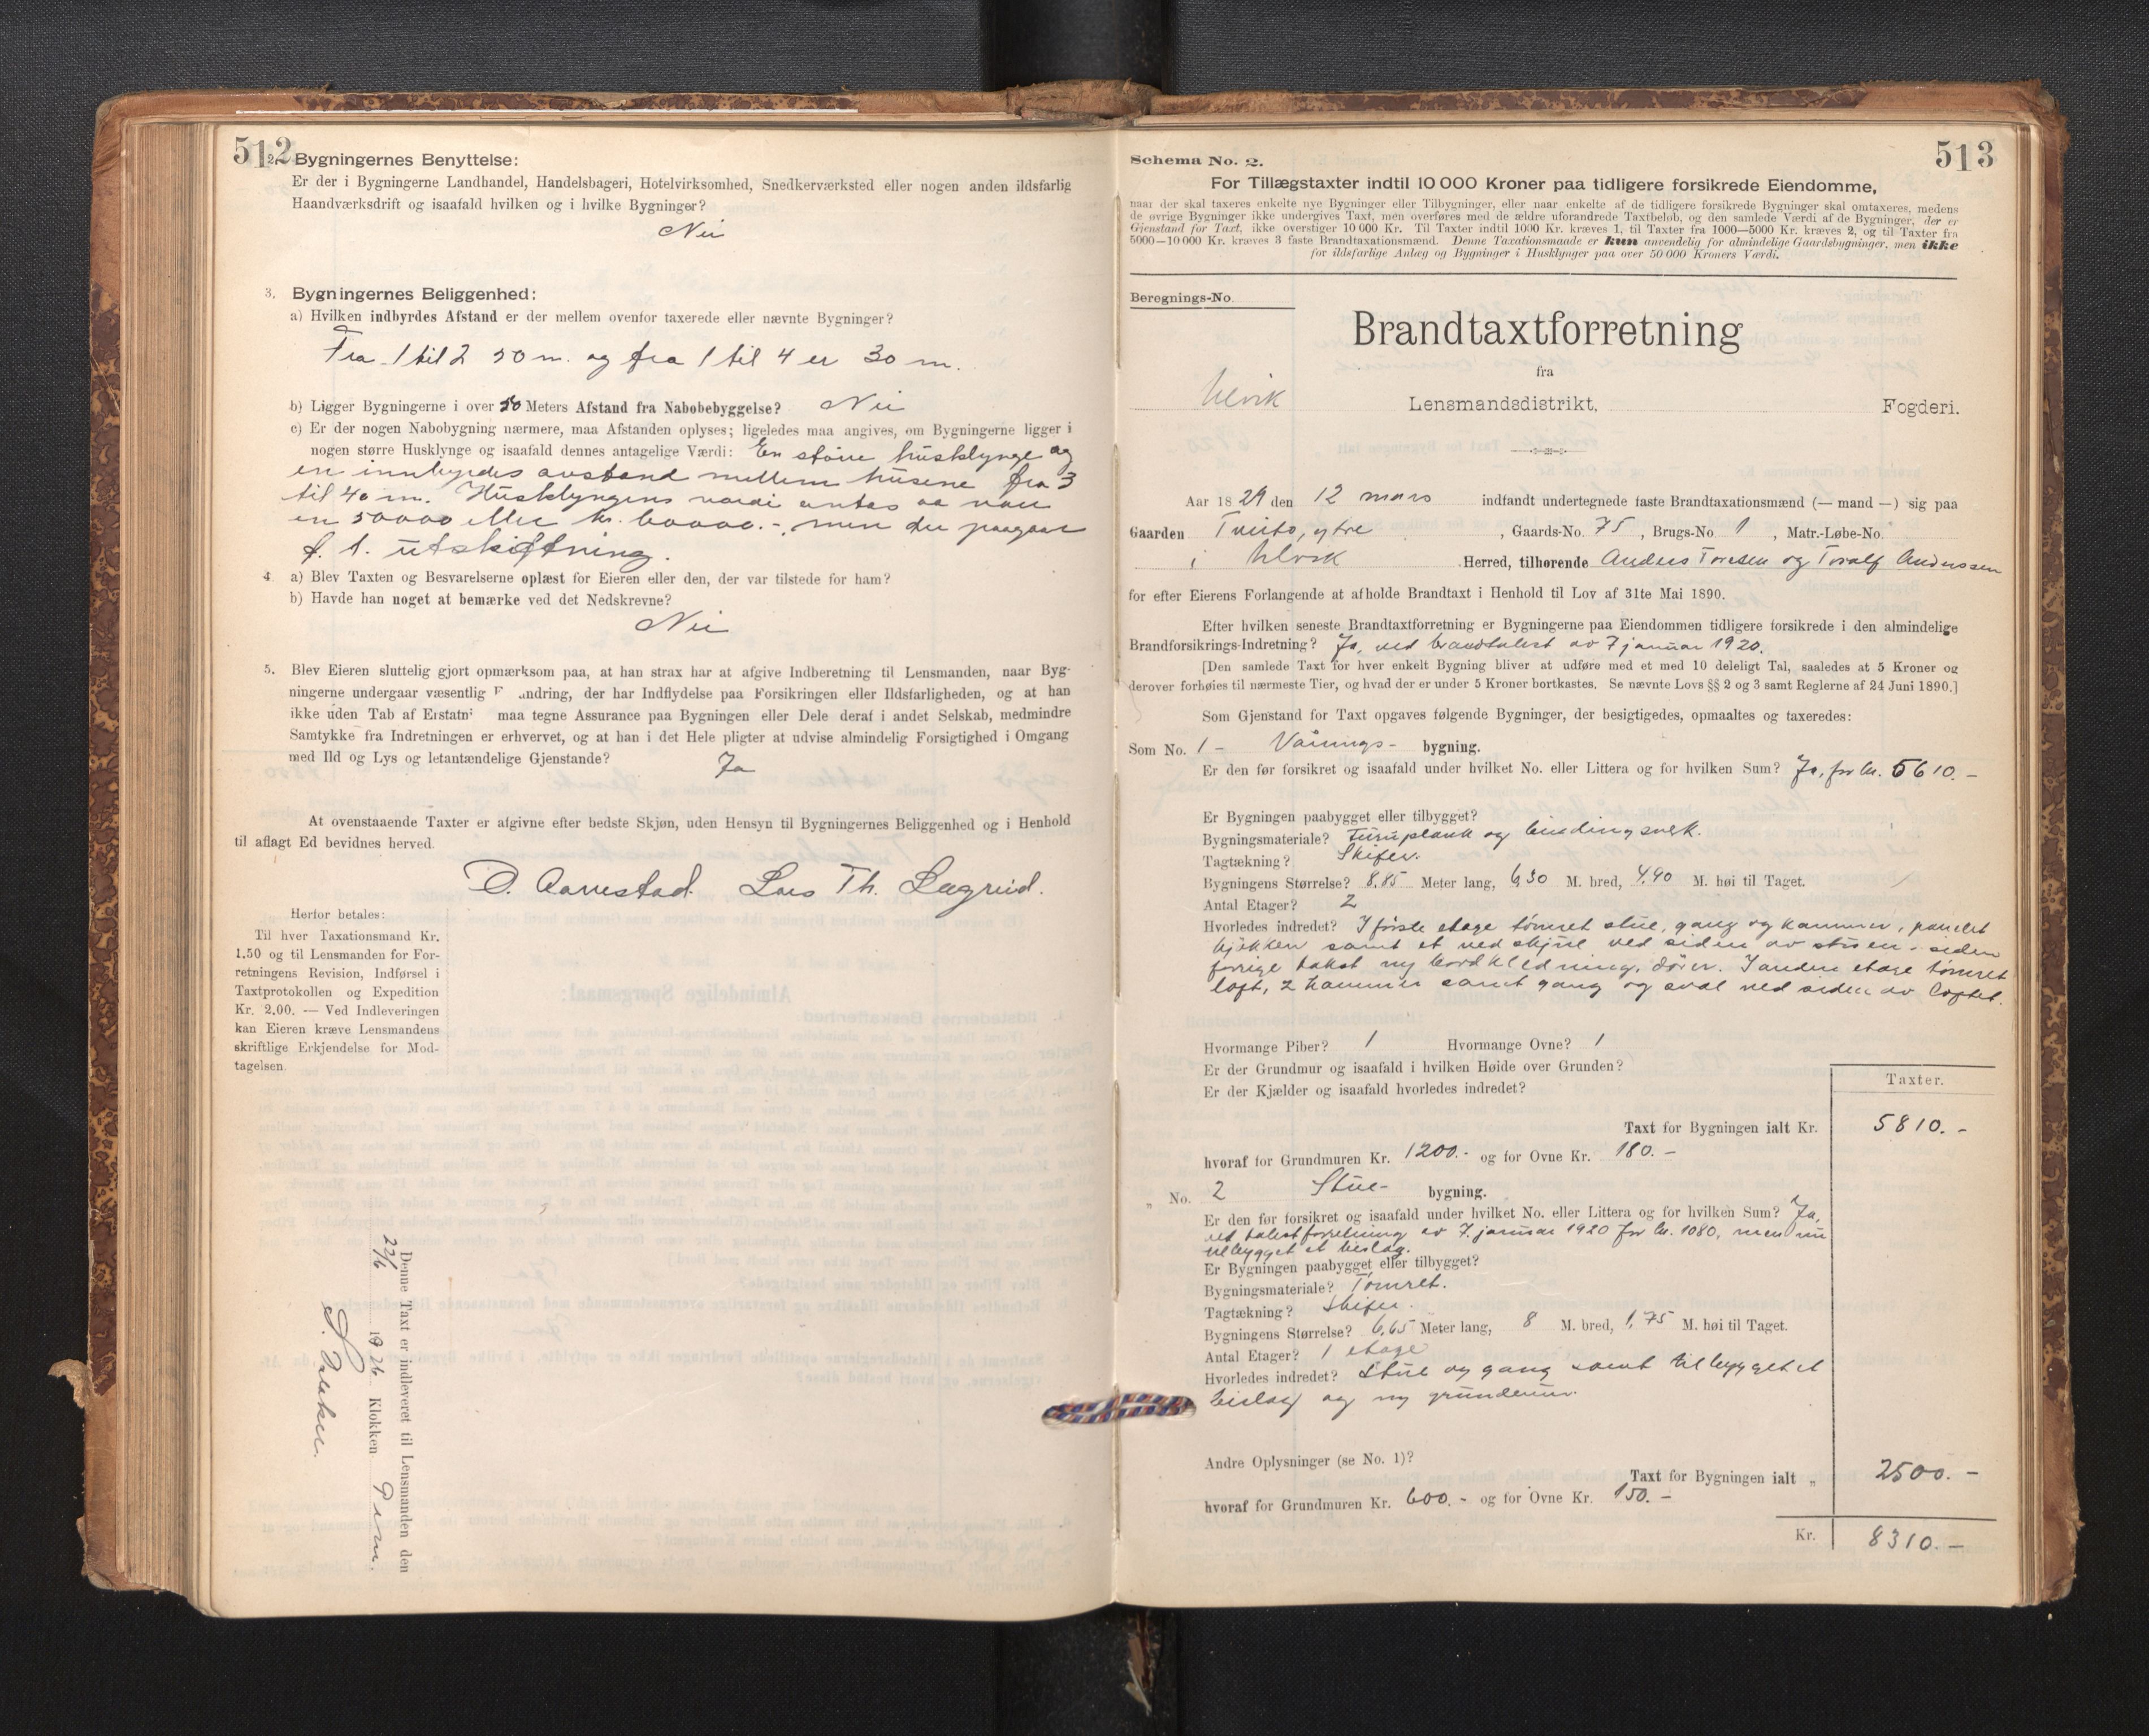 512
2. Bygningernes Benyttelse:
Er der i Bygningerne Landhandel, Handelsbageri, Hotelvirksomhed, Snedkerværksted eller nogen anden ildsfarlig
Haandværksdrift og isaafald hvilken og i hvilke Bygninger?
Nei
3. Bygningernes Beliggenhed:
a) Hvilken indbyrdes Afstand er der mellem ovenfor taxerede eller nævnte Bygninger?
Fra 1 til 2 50 m. og fra 1 til 4 er 30 m.
b) Ligger Bygningerne i over 50 Meters Afstand fra Nabobebyggelse? Nei
c) Er der nogen Nabobygning nærmere, maa Afstanden oplyses; ligeledes maa angives, om Bygningerne ligger i
nogen større Husklynge og isaafald dennes antagelige Værdi: En større husklynge og
en innbyrdes avstand mellem husene fra 3
til 40 m. Husklyngens verdi antas aa være
en 50000 eller kr. 60000.-, men der paagaar
f. t. utskiftning.
4. a) Blev Taxten og Besvarelserne oplæst for Eieren eller den, der var tilstede for ham?
b) Havde han noget at bemærke ved det Nedskrevne?
Nei
5. Blev Eieren sluttelig gjort opmærksom paa, at han strax har at afgive Indberetning til Lensmanden, naar Byg-
ningerne undergaar væsentlig F andring, der har Indflydelse paa Forsikringen eller Ildsfarligheden, og at han
ikke uden Tab af Erstatni maa tegne Assurance paa Bygningen eller Dele deraf i andet Selskab, medmindre
Samtykke fra Indretningen er erhvervet, og at han i det Hele pligter at udvise almindelig Forsigtighed i Omgang
med Ild og Lys og letantændelige Gjenstande? Ja
At ovenstaaende Taxter er afgivne efter bedste Skjøn, uden Hensyn til Bygningernes Beliggenhed og i Henhold
til aflagt Ed bevidnes herved.
D. Aarrestad. Lars Th. Lægreid.
Herfor betales:
Til hver Taxationsmand Kr.
1.50 og til Lensmanden for For-
retningens Revision, Indførsel i
Taxtprotokollen og Expedition
Kr. 2.00. — Ved Indleveringen
kan Eieren kræve Lensmandens
skriftlige Erkjendelse for Mod-
tagelsen.
Denne Taxt er indleveret til Lensmanden den
22/6 1926 Klokken 9 em.
513
Schema No. 2.
For Tillægstaxter indtil 10 000 Kroner paa tidligere forsikrede Eiendomme,
naar der skal taxeres enkelte nye Bygninger eller Tilbygninger, eller naar enkelte af de tidligere forsikrede Bygninger skal omtaxeres, medens
de øvrige Bygninger ikke undergives Taxt, men overføres med de ældre uforandrede Taxtbeløb, og den samlede Værdi af de Bygninger, der er
Gjenstand for Taxt, ikke overstiger 10 000 Kr. Til Taxter indtil 1000 Kr. kræves 1, til Taxter fra 1000—5000 Kr. kræves 2, og til Taxter fra
5000—10 000 Kr. kræves 3 faste Brandtaxationsmænd. Denne Taxationsmaade er kun anvendelig for almindelige Gaardsbygninger, men ikke
for ildsfarlige Anlæg og Bygninger i Husklynger paa over 50 000 Kroners Værdi.
Beregnings-No.
Brandtaxtforretning
fra
Ulvik Lensmandsdistrikt, Fogderi.
Aar 1829 den 12 mars indfandt undertegnede faste Brandtaxationsmænd (— mand —) sig paa
Gaarden Tveito, ytre, Gaards-No. 75, Brugs-No. 1, Matr.-Løbe-No.
i Ulvik Herred, tilhørende Anders Toresen og Toralf Anderssen
for efter Eierens Forlangende at afholde Brandtaxt i Henhold til Lov af 31te Mai 1890.
Efter hvilken seneste Brandtaxtforretning er Bygningerne paa Eiendommen tidligere forsikrede i den almindelige
Brandforsikrings-Indretning? Ja, ved brandtakst av 7 januar 1920.
[Den samlede Taxt for hver enkelt Bygning bliver at udføre med et med 10 deleligt Tal, saaledes at 5 Kroner og
derover forhøies til nærmeste Tier, og hvad der er under 5 Kroner bortkastes. Se nævnte Lovs §§ 2 og 3 samt Reglerne af 24 Juni 1890.]
Som Gjenstand for Taxt opgaves følgende Bygninger, der besigtigedes, opmaaltes og taxeredes:
Som No. 1 - Vånings- bygning.
Er den før forsikret og isaafald under hvilket No. eller Littera og for hvilken Sum? Ja, for kr. 5610.-
Er Bygningen paabygget eller tilbygget?
Bygningsmateriale? Furuplank og bindingsverk.
Tagtækning? Skifer.
Bygningens Størrelse? 8,85 Meter lang, 6,30 M. bred, 4,90 M. høi til Taget.
Antal Etager? 2
Hvorledes indredet? I første etage tømret stue, gang og kammer, panelet
kjøkken samt et vedskjul ved siden av stuen. siden
forrige takst ny bordkledning, dører. I anden etage tømret
loft, 2 kammer samt gang og sval ved siden av loftet.
Hvormange Piber? 1 Hvormange Ovne? 1
Er der Grundmur og isaafald i hvilken Høide over Grunden?
Er der Kjælder og isaafald hvorledes indredet?
Taxter.
Taxt for Bygningen ialt Kr. 5810.-
hvoraf for Grundmuren Kr. 1200.- og for Ovne Kr. 180.-
" No. 2 Stue- bygning.
Er den før forsikret og isaafald under hvilket No. eller Littera og for hvilken Sum? Ja,
ved takstforretning av 7. januar 1920 for kr. 1080, men nu
tilbygget et beslag.
Er Bygningen paabygget eller tilbygget?
Bygningsmateriale? Tømret.
Tagtækning? Skifer.
Bygningens Størrelse? 6,65 Meter lang, 8 M. bred, 1,75 M. høi til Taget.
Antal Etager? 1 etage
Hvorledes indredet? Stue og gang samt tilbygget et
beislag og ny grundmur.
Andre Oplysninger (se No. 1)?
Taxt for Bygningen ialt „ 2500.-
hvoraf for Grundmuren Kr. 600.- og for Ovne Kr. 150.-
Kr. 8310.-